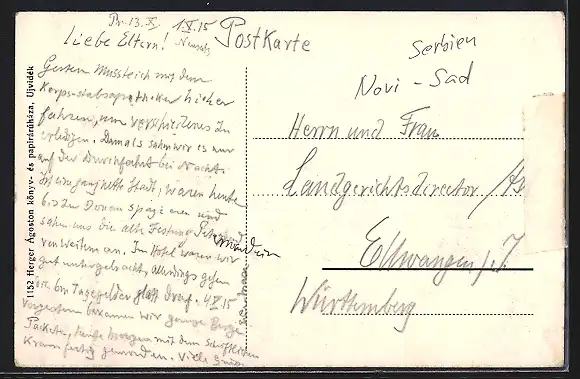 Pr. 13. X. 1.X.15
Liebe Eltern! Neusatz
PostKarte
Serbien
Novi - Sad
Gestern musste ich mit dem
Korps-stabsapotheker hieher
fahren, um verschiedenes zu
erledigen. Damals sahn wir es nur
auf der Durchfahrt bei Nacht.
Ist eine ganz nette Stadt, waren heute
bis zur Donau spazieren und
sahen uns die alte Festung Peterwardein
von weitem an. Im Hotel waren wir
gut untergebracht, allerdings gehen
die Tagegelder glatt drauf. 4.X.15
Vorgestern bekamen wir ganze Berge
Pakete, heute morgen mit dem schriftlichen
Kram fertig geworden. Viele Grüsse
Herrn und Frau
Landgerichtsdirector
Ellwangen a. J.
Württemberg
1152 Herger Ágoston könyv- és papiráruháza, Ujvidék